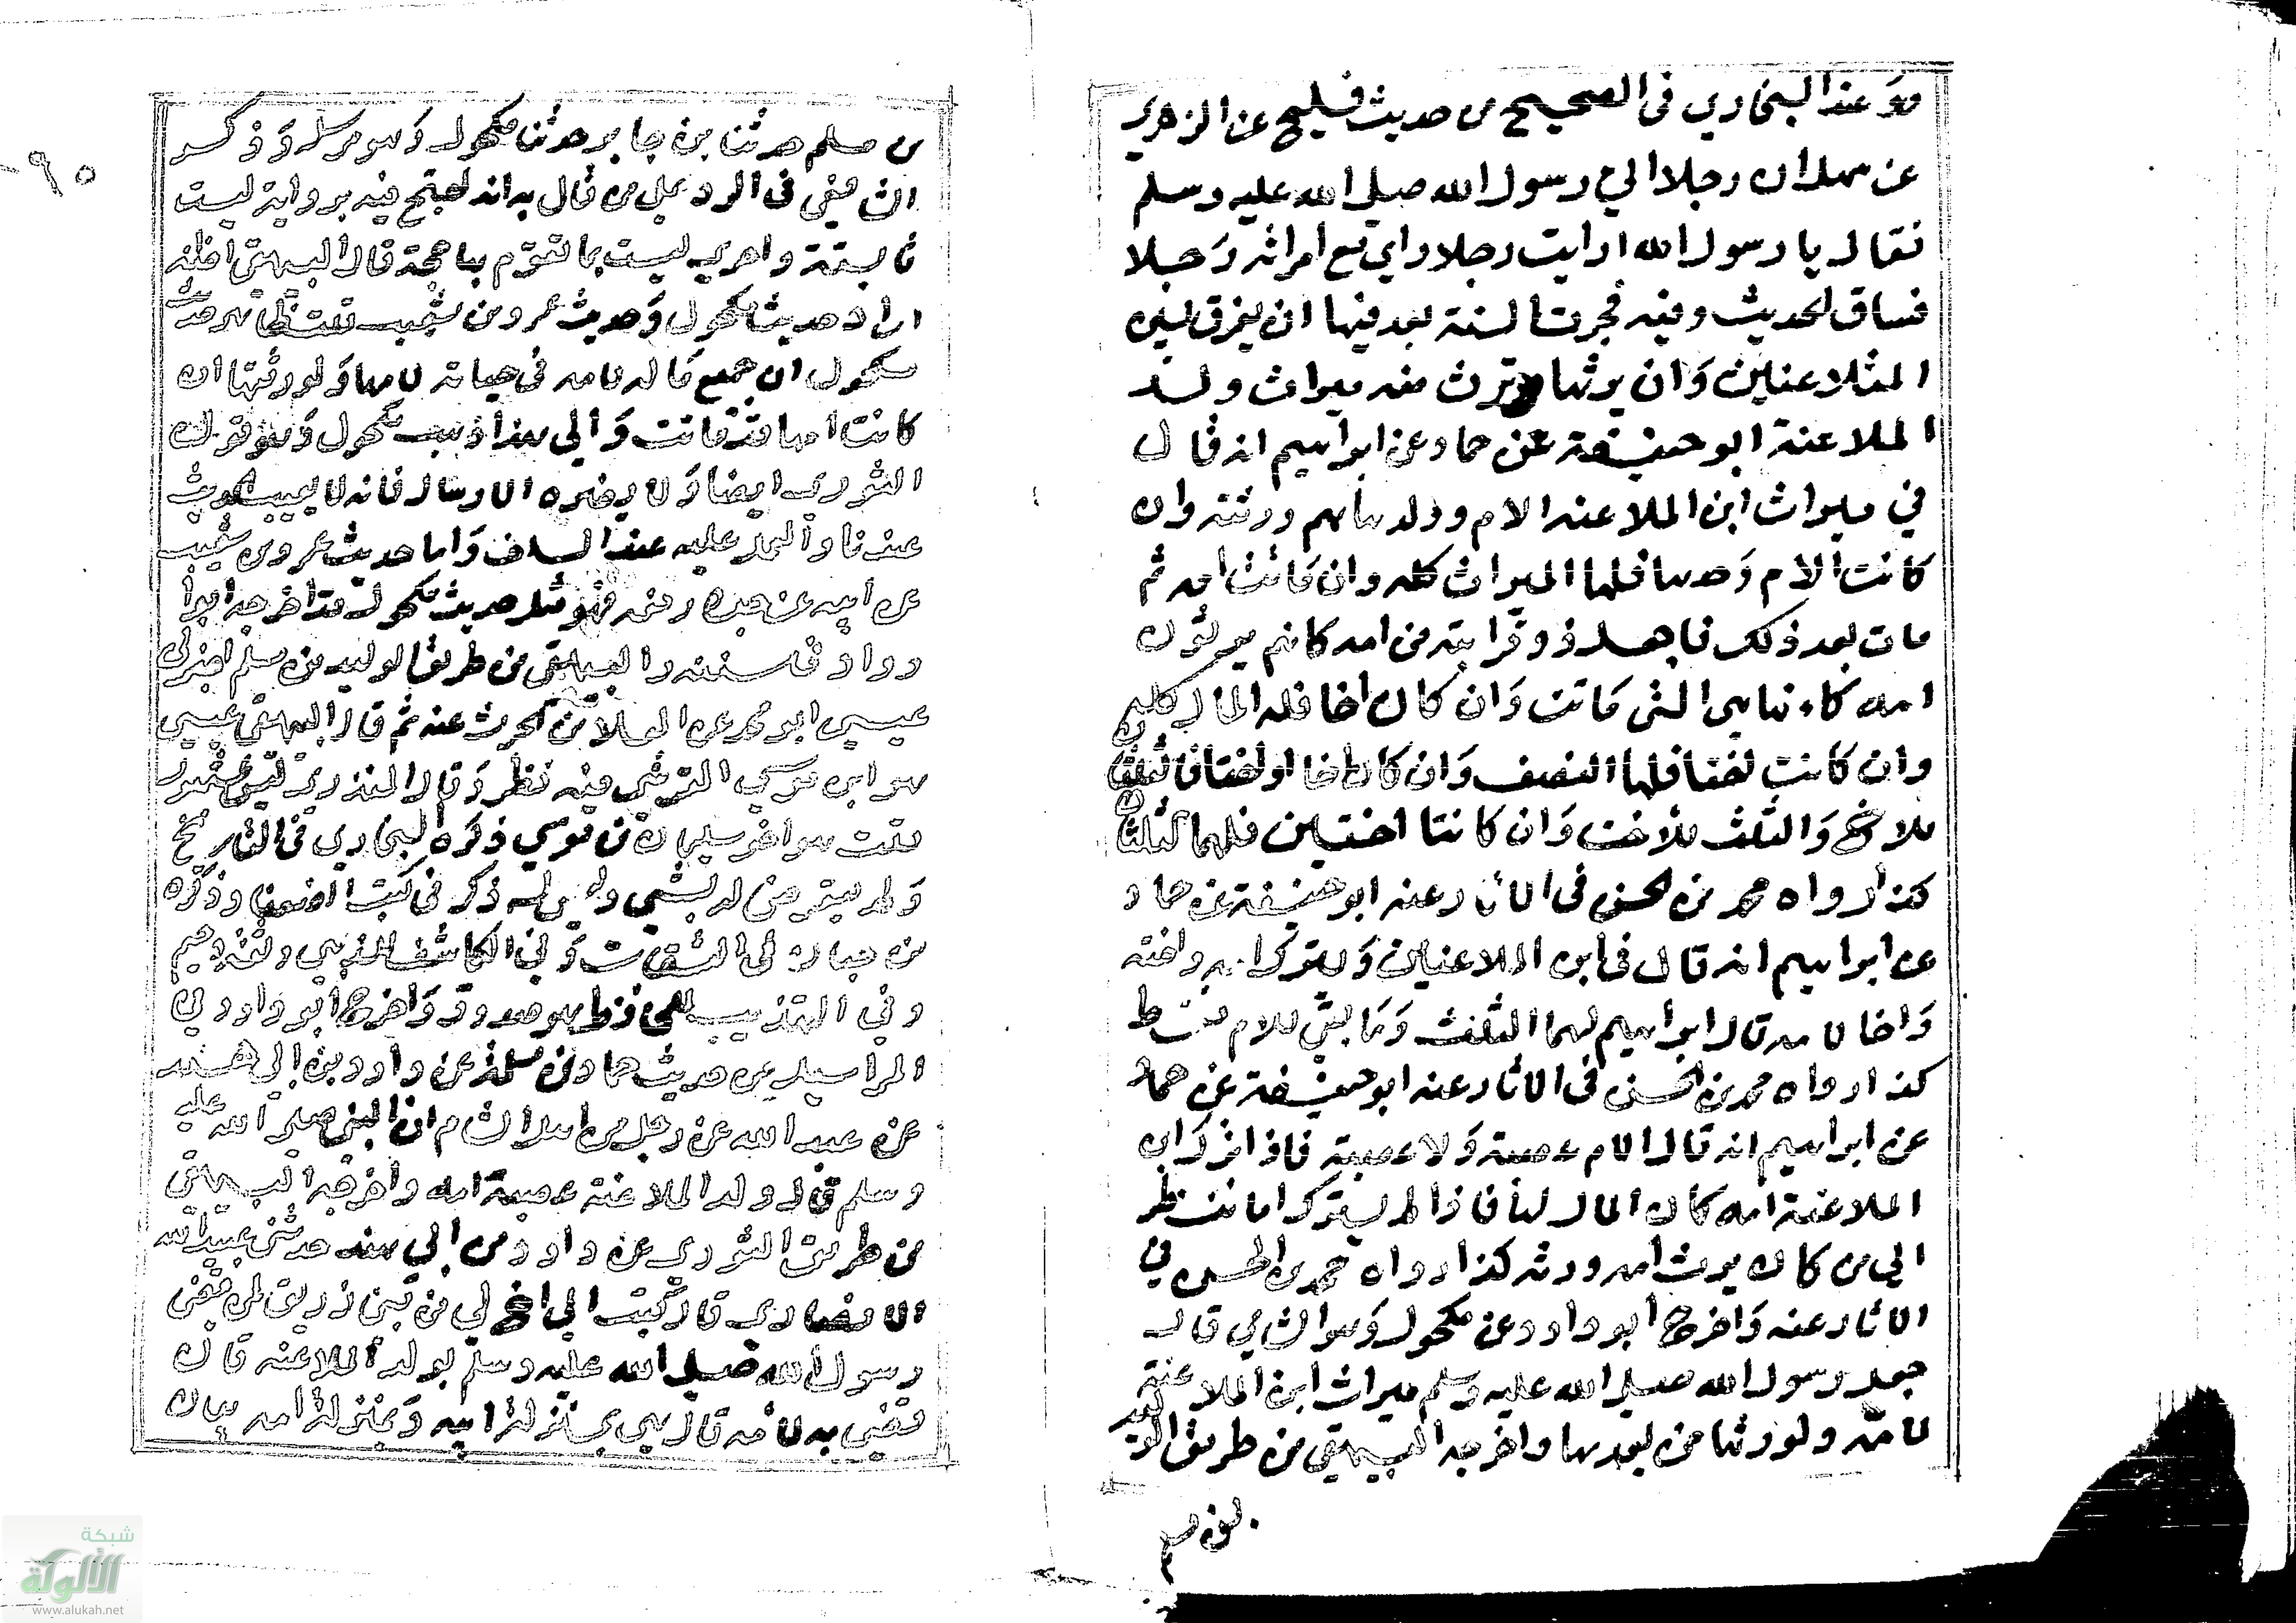 وهو عند البخاري في الصحيح من حديث فليح عن الزهري
عن سهل ان رجلا اتي رسول الله صلي الله عليه وسلم
فقال يا رسول الله ارايت رجلا راي مع امراته رجلا
فساق الحديث وفيه فجرت السنة بعد فيها ان يفرق بين
المتلاعنين وان يرثها وترث منه ميراث ولد
الملاعنة ابو حنيفة عن حماد عن ابراهيم انه قال
في ميراث ابن الملاعنه الام وولدها هم ورثته وان
كانت الام وحدها فلها الميراث كله وان كانت امه ثم
مات بعد ذلك فاجعل ذوو قرابته من امه كانهم يرثون
امه كانها هي التي ماتت وان كان اخا فله المال كله
وان كانت اختا فلها النصف وان كان اخا او اختا فالثلثان
للاخ والثلث للاخت وان كانتا اختين فلهما الثلثان
كذا رواه محمد بن الحسن في الاثار عنه ابو حنيفة عن حماد
عن ابراهيم انه قال في ابن الملاعنين ويترك امه واخته
واخا لامه قال ابراهيم لهما الثلث وما بقي للام فقط
كذا رواه محمد بن الحسن في الاثار عنه ابو حنيفة عن حماد
عن ابراهيم انه قال الام عصبة ولا عصبة فاذا ترك ابن
الملاعنة امه كان المال لها فاذا لم يترك اما ننظر
الي من كان يرث امه ورثه كذا رواه محمد بن الحسن في
الاثار عنه واخرج ابو داود عن مكحول وهو الشامي قال
جعل رسول الله صلي الله عليه وسلم ميراث ابن الملاعنة
لامه ولورثتها من بعدها واخرجه البيهقي من طريق الوليد
بن مسلم
٩٥
بن مسلم حدثنا بن جابر حدثنا مكحول وهو مرسل وذكر
الشافعي في الرد علي من قال به انه احتج فيه برواية ليست
ثابتة واخري ليست مما تقوم بها حجة قال البيهقي اظنه
اراد حديث مكحول وحديث عمرو بن شعيب
مكحول ان جميع ماله لامه في حياته لامها ولورثتها ان
كانت امها قد ماتت والي هذا ذهب مكحول وهو قول
الثوري ايضا ولا يضره الارسال فانه لا يعيب الحديث
عندنا والعمل عليه عند السلف واما حديث عمرو بن شعيب
عن ابيه عن جده رفعه فهو مثل حديث مكحول فقد اخرجه ابو
داود في سننه والبيهقي من طريق الوليد بن مسلم اخبرني
عيسي ابو محمد عن العلا بن الحرث عنه ثم قال البيهقي عيسي
هو ابن موسي القرشي فيه نظر وقال المنذري ليس بمشهور
قلت هو اخو سليمان بن موسي ذكره البخاري في التاريخ
ولم يتعرض له بشي وليس له ذكر في كتب الضعفا وذكره
بن حبان في الثقات وفي الكاشف للذهبي وثقه دحيم
وفي التهذيب للحافظ هو صدوق واخرج ابو داود في
المراسيل من حديث حماد بن سلمة عن داود بن ابي هند
عن عبد الله عن رجل من اهل الشام ان النبي صلي الله عليه
وسلم قال ولد الملاعنة عصبة امه واخرجه البيهقي
من طريق الثوري عن داود بن ابي هند حدثني عبيد الله
الانصاري قال كتبت الي اخ لي من بني زريق لمن قضي
رسول الله صلي الله عليه وسلم بولد الملاعنه قال
قضي به لامه قال هي بمنزلة ابيه وبمنزلة امه
شبكة
الألوكة
www.alukah.net